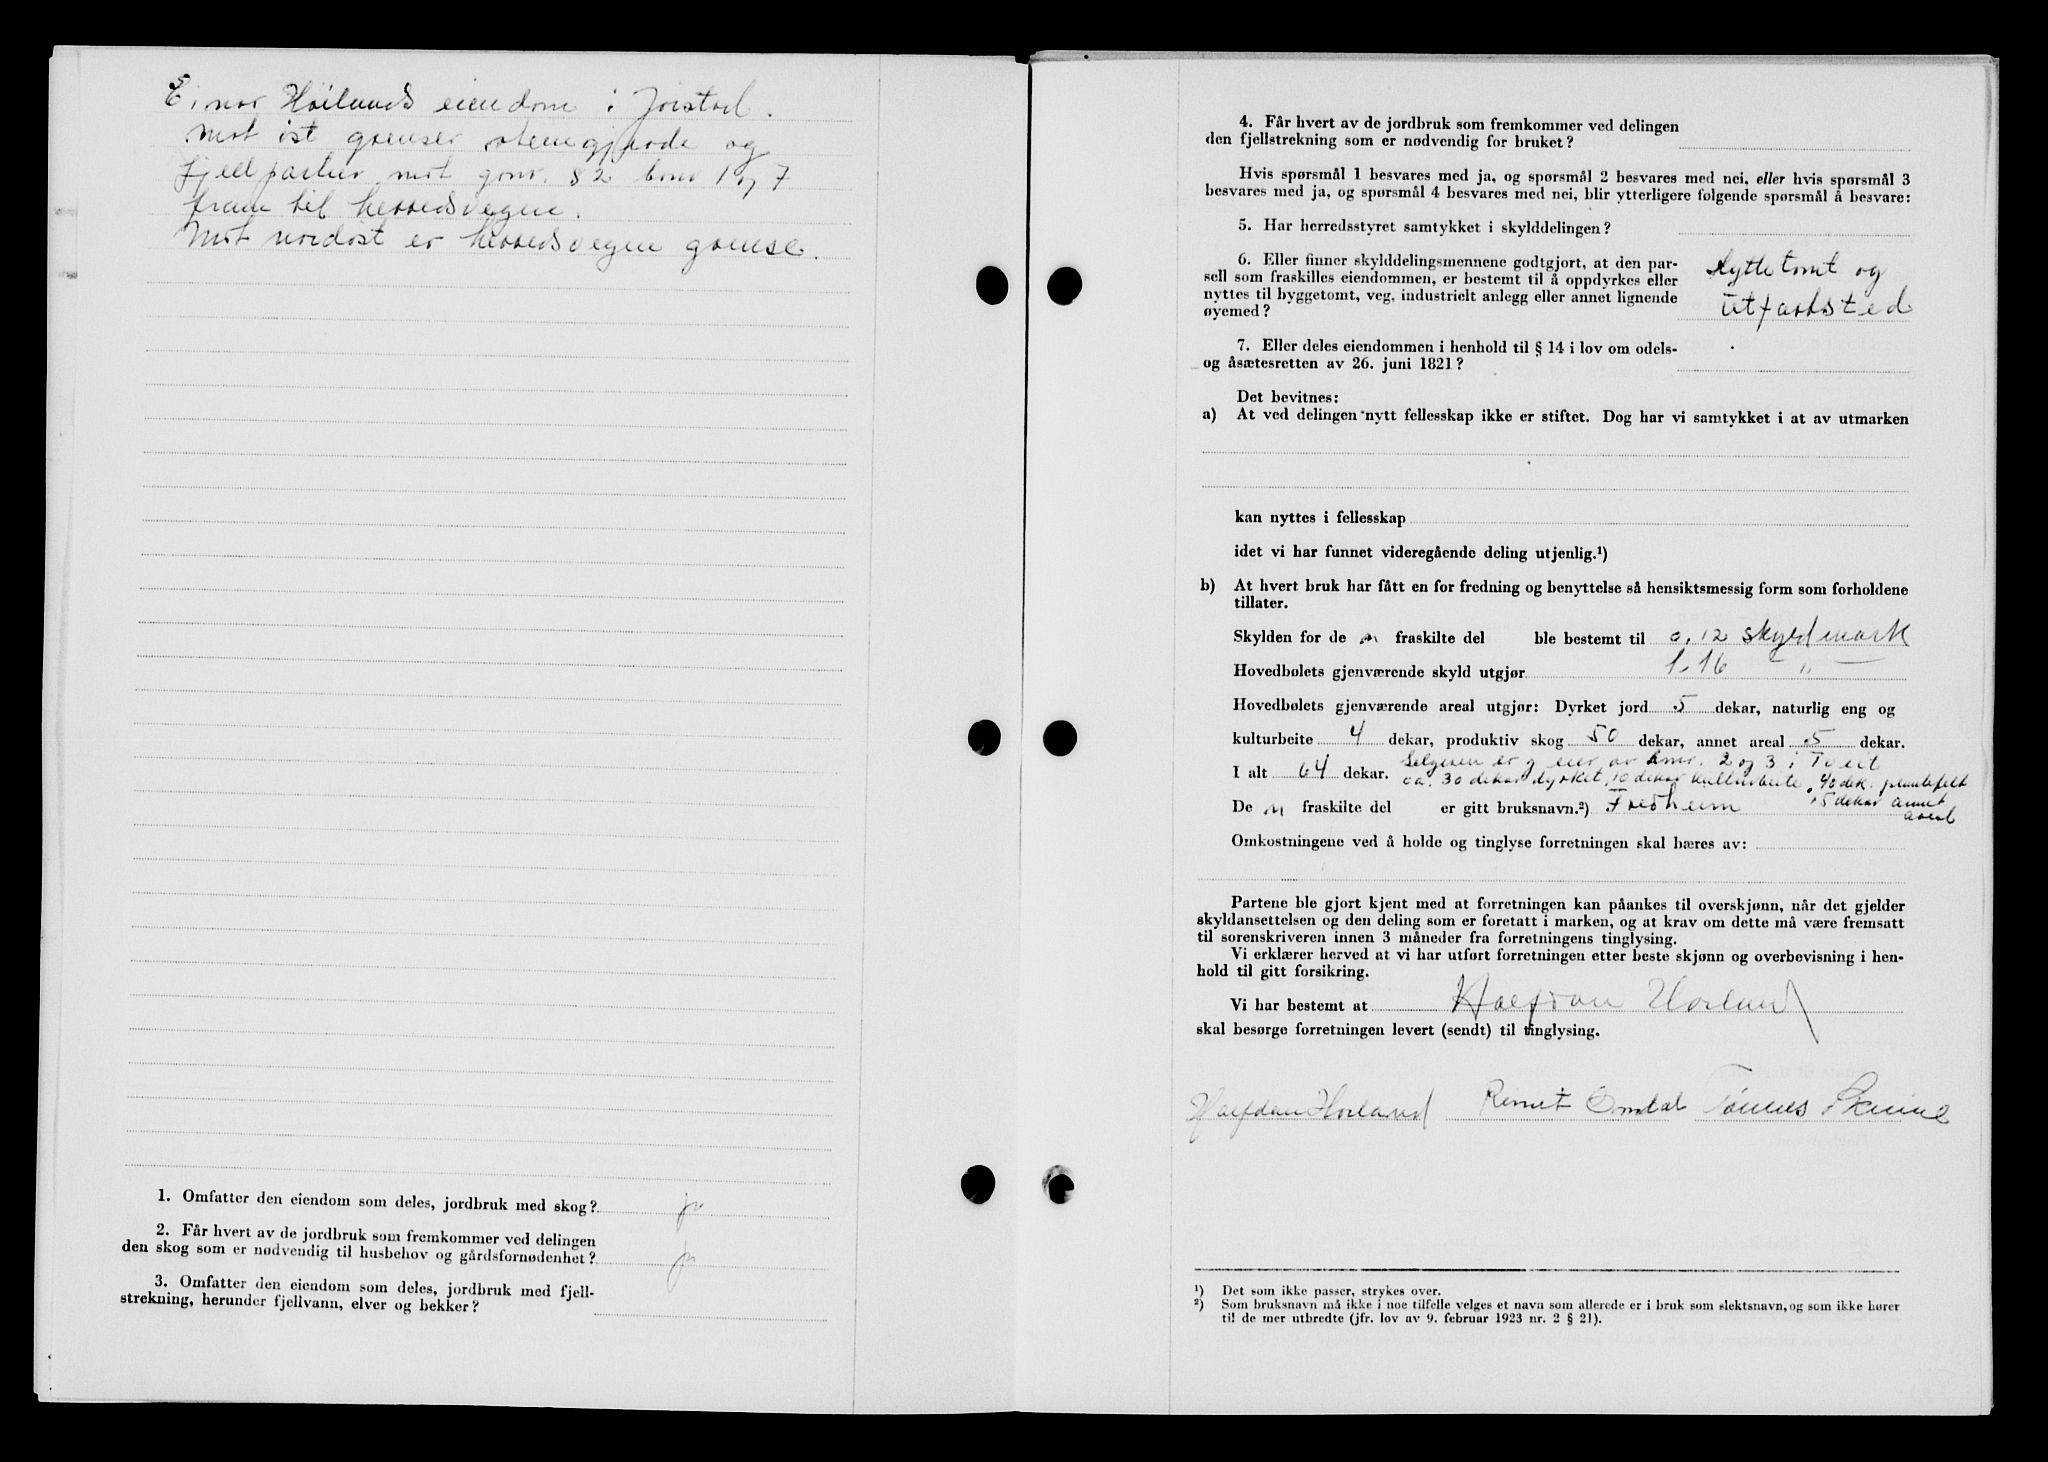 Einar Høilands eiendom i Joistad.
Mot øst grenser stenegjærde og
fjellpartier mot gnr. 82 bnr 1 og 7
fram til herredsvegen.
Mot nordøst er herredsvegen grense.
1. Omfatter den eiendom som deles, jordbruk med skog? ja
2. Får hvert av de jordbruk som fremkommer ved delingen
den skog som er nødvendig til husbehov og gårdsfornødenhet? ja
3. Omfatter den eiendom som deles, jordbruk med fjell-
strekning, herunder fjellvann, elver og bekker?
4. Får hvert av de jordbruk som fremkommer ved delingen
den fjellstrekning som er nødvendig for bruket?
Hvis spørsmål 1 besvares med ja, og spørsmål 2 besvares med nei, eller hvis spørsmål 3
besvares med ja, og spørsmål 4 besvares med nei, blir ytterligere følgende spørsmål å besvare:
5. Har herredsstyret samtykket i skylddelingen?
6. Eller finner skylddelingsmennene godtgjort, at den par-
sell som fraskilles eiendommen, er bestemt til å oppdyrkes eller
nyttes til byggetomt, veg, industrielt anlegg eller annet lignende
øyemed?
Hyttetomt og
utfartssted
7. Eller deles eiendommen i henhold til § 14 i lov om odels-
og åsætesretten av 26. juni 1821?
Det bevitnes:
a) At ved delingen nytt fellesskap ikke er stiftet. Dog har vi samtykket i at av utmarken
kan nyttes i fellesskap
idet vi har funnet videregående deling utjenlig.¹)
b) At hvert bruk har fått en for fredning og benyttelse så hensiktsmessig form som forholdene
tillater.
Skylden for de n fraskilte del ble bestemt til 0.12 skyldmark
Hovedbølets gjenværende skyld utgjør 1.16 — " —
Hovedbølets gjenværende areal utgjør: Dyrket jord 5 dekar, naturlig eng og
kulturbeite 4 dekar, produktiv skog 50 dekar, annet areal 5 dekar.
I alt 64 dekar. Selgeren er og eier av bnr. 2 og 3 i Tveit
ca. 30 dekar dyrket, 10 dekar kulturbeite, 40 dek. plantefelt
5 dekar annet
areal
De n fraskilte del er gitt bruksnavn.²) Fredheim
Omkostningene ved å holde og tinglyse forretningen skal bæres av:
Partene ble gjort kjent med at forretningen kan påankes til overskjønn, når det gjelder
skyldansettelsen og den deling som er foretatt i marken, og at krav om dette må være fremsatt
til sorenskriveren innen 3 måneder fra forretningens tinglysing.
Vi erklærer herved at vi har utført forretningen etter beste skjønn og overbevisning i hen-
hold til gitt forsikring.
Vi har bestemt at Halfdan Horland
skal besørge forretningen levert (sendt) til tinglysing.
Halfdan Horland Reinert Omdal Tønnes
¹) Det som ikke passer, strykes over.
²) Som bruksnavn må ikke i noe tilfelle velges et navn som allerede er i bruk som slektsnavn, og som ikke hører
til de mer utbredte (jfr. lov av 9. februar 1923 nr. 2 § 21).